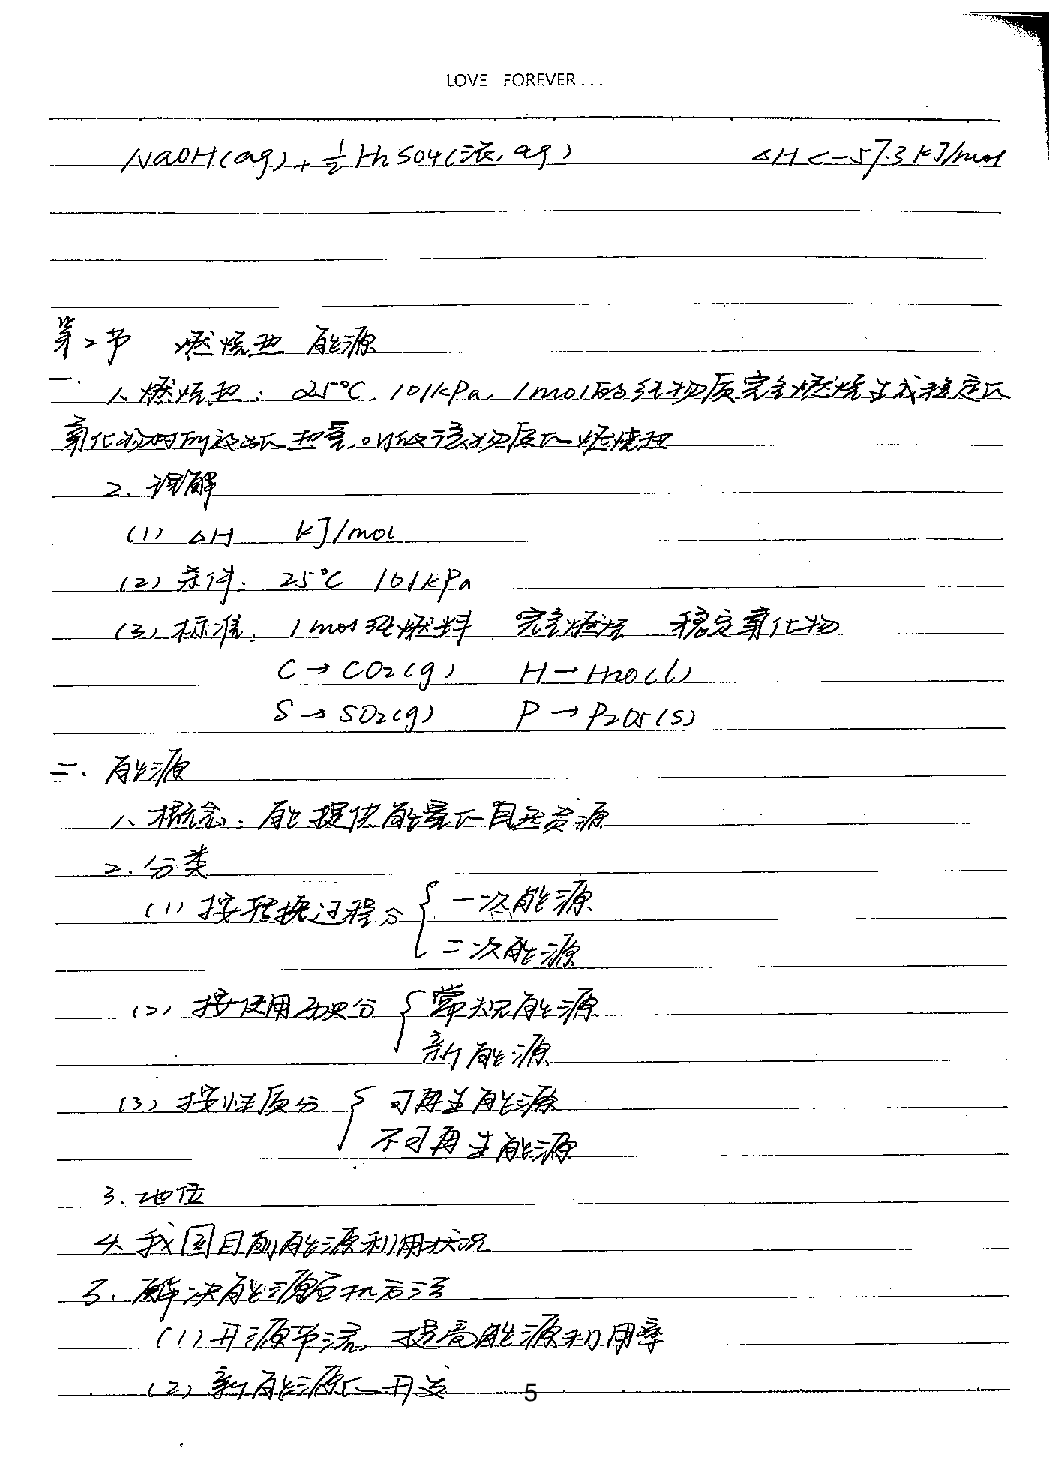 LOVE FOREVER...
NaOH(aq)+½H2SO4(浓,aq) △H<-57.3kJ/mol
第二节 燃烧热 能源
一.1.燃烧热：25℃.101kPa.1mol的纯物质完全燃烧生成稳定的
氧化物时所放出的热量.叫做该物质的燃烧热
2.理解
(1) △H kJ/mol
(2)条件：25℃ 101kPa
(3)标准：1mol纯燃料 完全燃烧 稳定氧化物
C→CO2(g) H→H2O(l)
S→SO2(g) P→P2O5(s)
二.能源
1.概念：能提供能量的自然资源
2.分类
(1)按转换过程分{一次能源
二次能源
(2)按使用历史分{常规能源
新能源
(3)按性质分{可再生能源
不可再生能源
3.地位
4.我国目前能源利用状况
5.解决能源危机方法
(1)开源节流 提高能源利用率
(2)新能源的开发
5